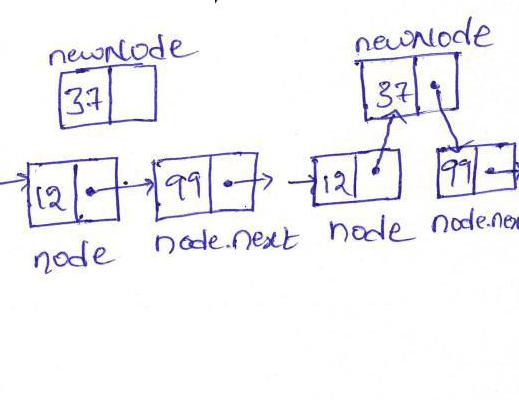 newNode
37
12
99
node
node.next
newNode
37
12
99
node
node.nex